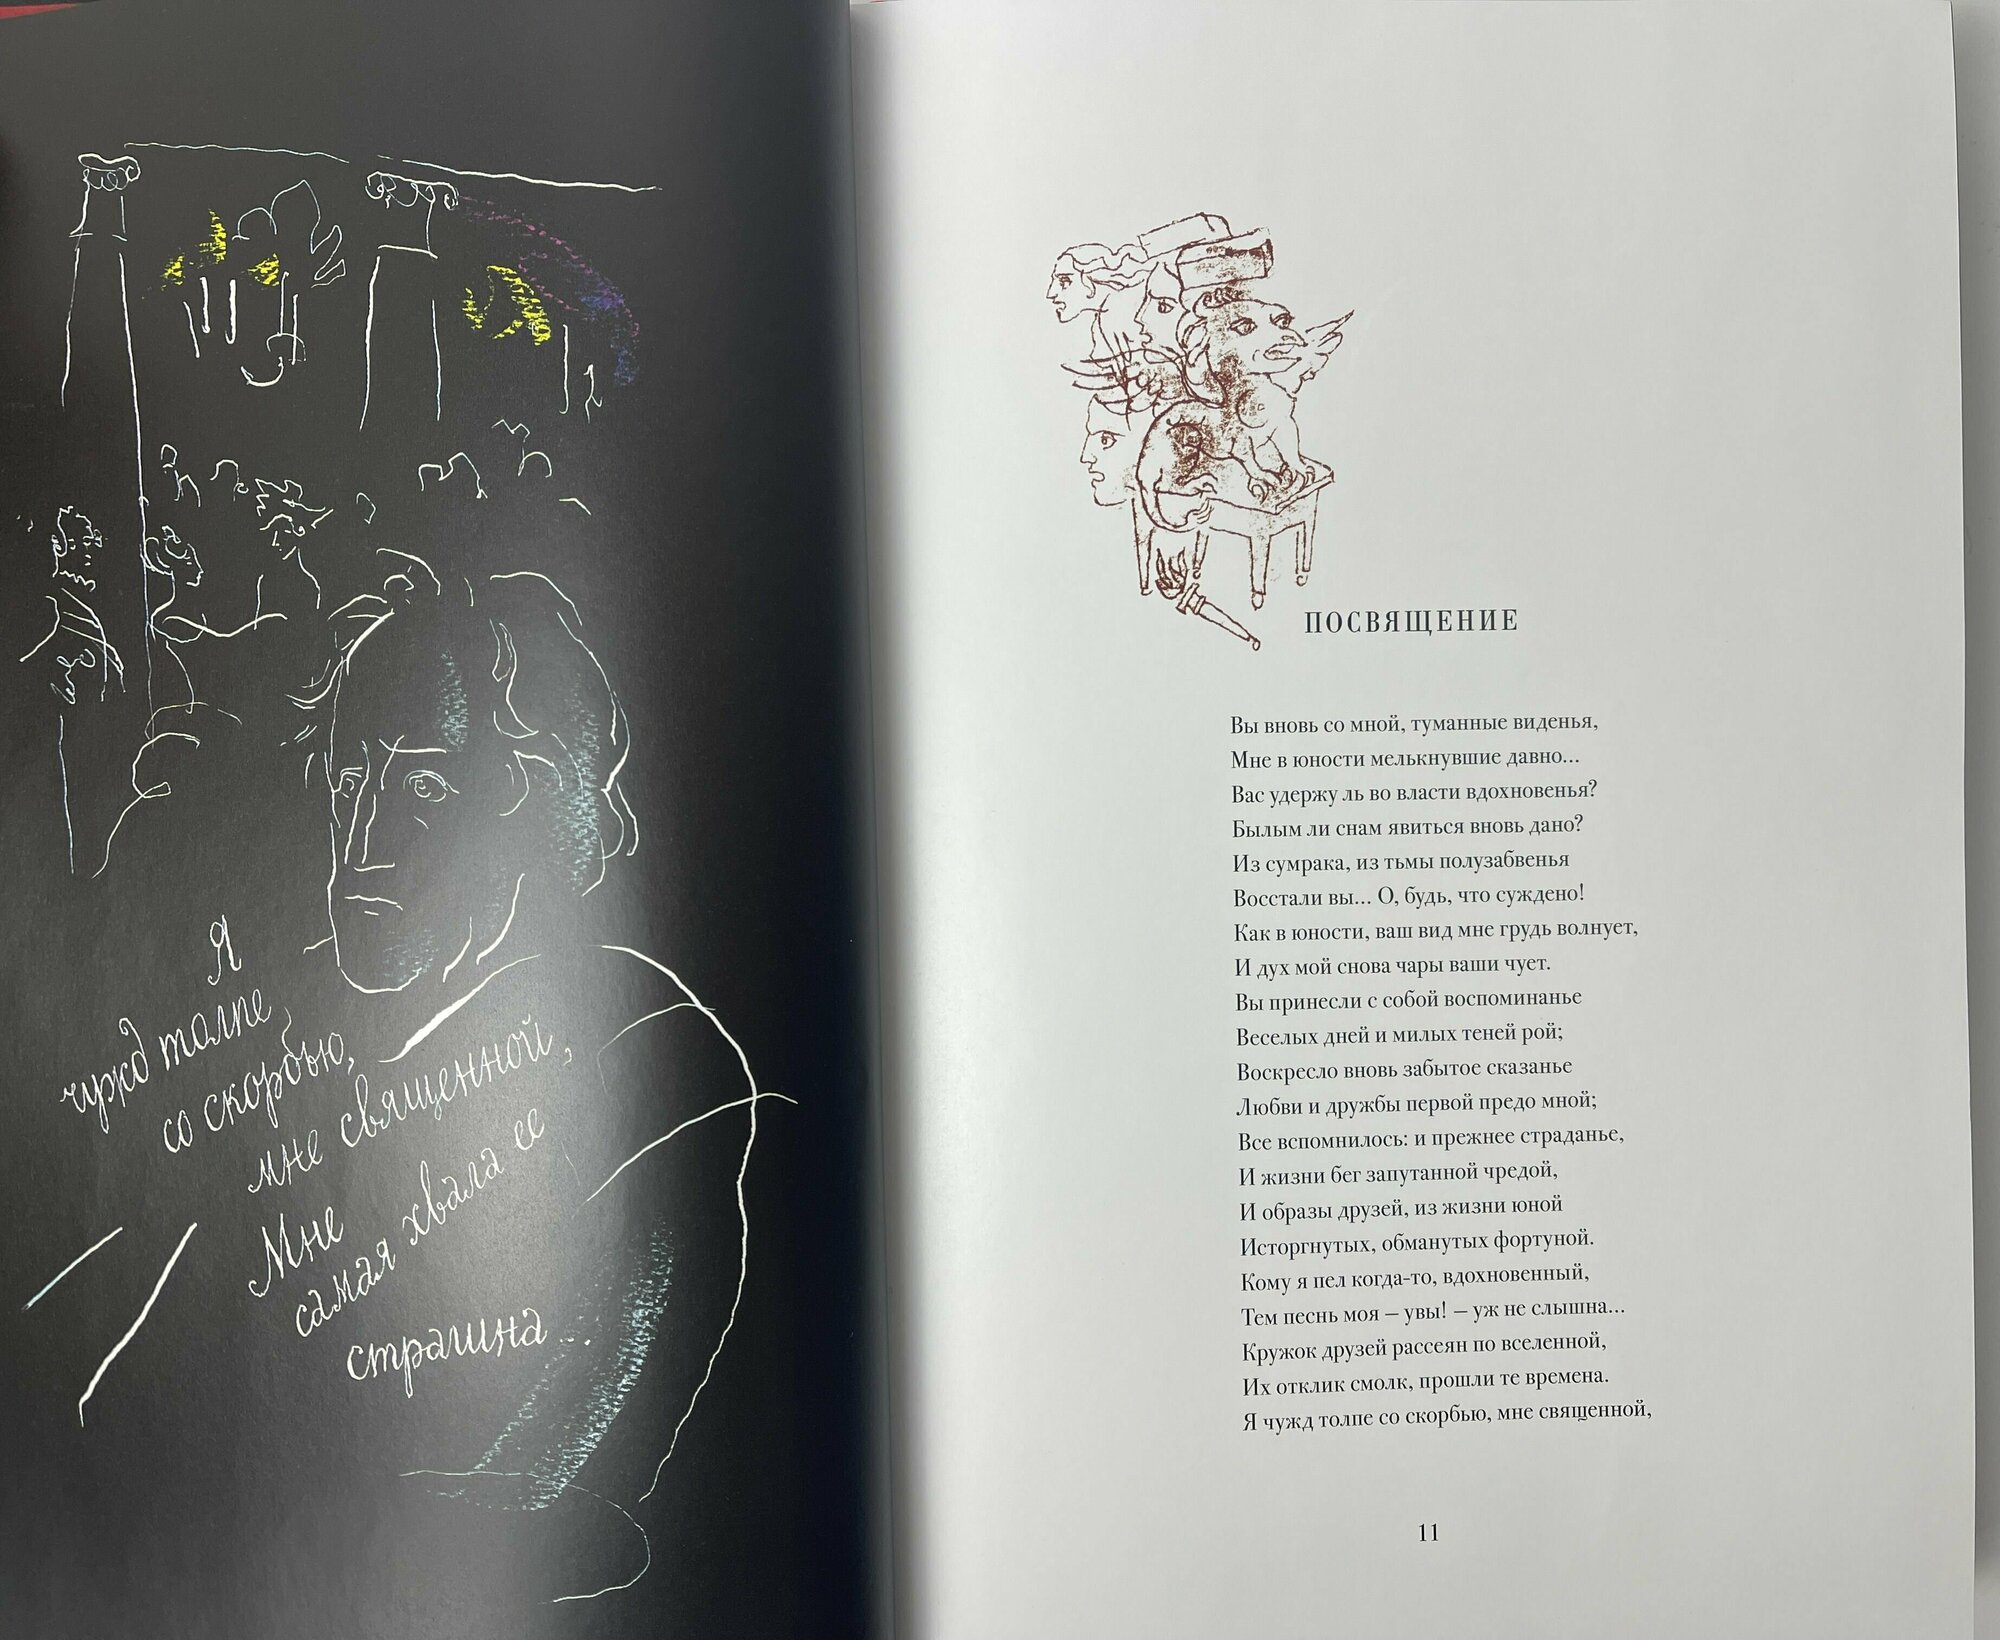 Я
чужд толпе
со скорбью,
мне священной,
Мне
самая хвала ее
страшна...
ПОСВЯЩЕНИЕ
Вы вновь со мной, туманные виденья,
Мне в юности мелькнувшие давно...
Вас удержу ль во власти вдохновенья?
Былым ли снам явиться вновь дано?
Из сумрака, из тьмы полузабвенья
Восстали вы... О, будь, что суждено!
Как в юности, ваш вид мне грудь волнует,
И дух мой снова чары ваши чует.
Вы принесли с собой воспоминанье
Веселых дней и милых теней рой;
Воскресло вновь забытое сказанье
Любви и дружбы первой предо мной;
Все вспомнилось: и прежнее страданье,
И жизни бег запутанной чредой,
И образы друзей, из жизни юной
Исторгнутых, обманутых фортуной.
Кому я пел когда-то, вдохновенный,
Тем песнь моя – увы! – уж не слышна...
Кружок друзей рассеян по вселенной,
Их отклик смолк, прошли те времена.
Я чужд толпе со скорбью, мне священной,
11